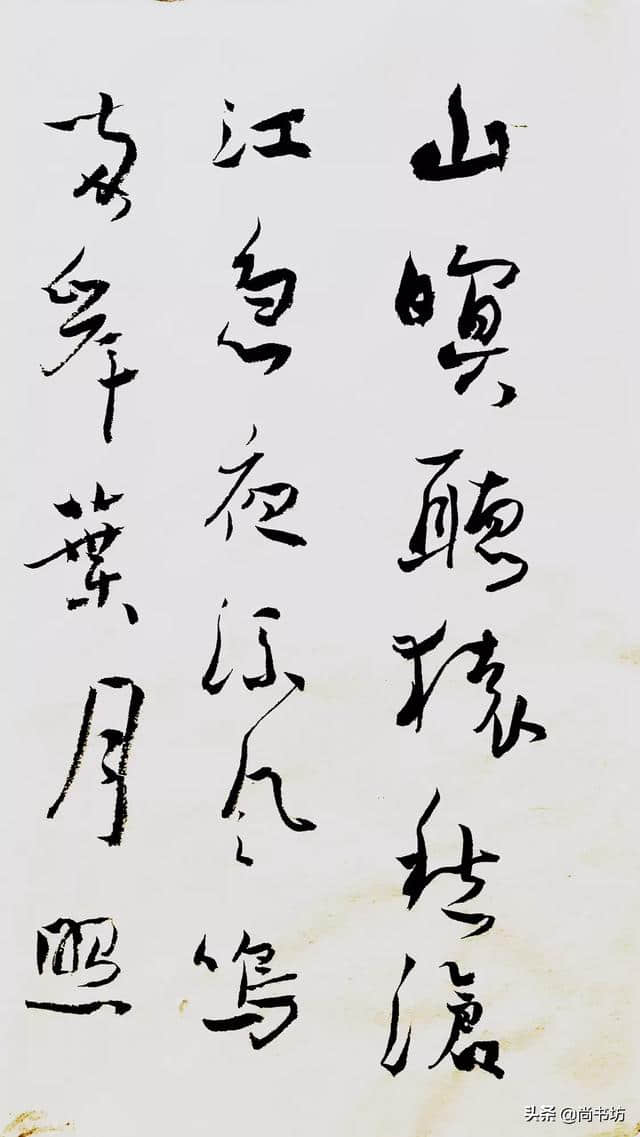 山暝聽猿愁滄
江急夜流風鳴
兩岸葉月照
头条 @尚书坊